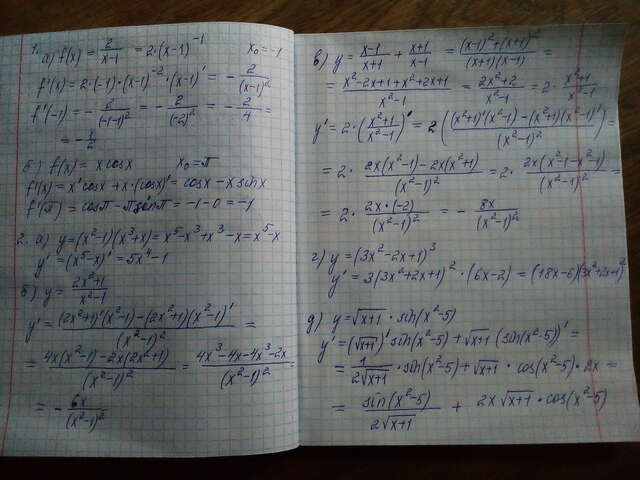 1. а) f(x) = 2/(x-1) = 2·(x-1)^-1 x₀=-1
f'(x) = 2·(-1)·(x-1)^-2·(x-1)' = - 2/(x-1)²
f'(-1) = - 2/(-1-1)² = - 2/(-2)² = - 2/4 =
= - 1/2
б) f(x) = x cosx x₀=π
f'(x) = x'cosx + x·(cosx)' = cosx - x sinx
f'(π) = cosπ - π sinπ = -1-0 = -1
2. а) y = (x²-1)(x³+x) = x⁵-x³+x³-x = x⁵-x
y' = (x⁵-x)' = 5x⁴-1
б) y = (2x²+1)/(x²-1)
y' = ((2x²+1)'(x²-1)-(2x²+1)(x²-1)')/(x²-1)² =
= (4x(x²-1)-2x(2x²+1))/(x²-1)² = (4x³-4x-4x³-2x)/(x²-1)² =
= - 6x/(x²-1)²
в) y = (x-1)/(x+1) + (x+1)/(x-1) = ((x-1)²+(x+1)²)/((x+1)(x-1)) =
= (x²-2x+1+x²+2x+1)/(x²-1) = (2x²+2)/(x²-1) = 2· (x²+1)/(x²-1)
y' = 2·((x²+1)/(x²-1))' = 2(((x²+1)'(x²-1)-(x²+1)(x²-1)')/(x²-1)²) =
= 2· (2x(x²-1)-2x(x²+1))/(x²-1)² = 2· (2x(x²-1-x²-1))/(x²-1)² =
= 2· (2x·(-2))/(x²-1)² = - 8x/(x²-1)²
г) y = (3x²-2x+1)³
y' = 3(3x²+2x+1)²·(6x-2) = (18x-6)(3x²+2x+1)²
д) y = √(x+1)·sin(x²-5)
y' = (√(x+1))'sin(x²-5)+√(x+1)(sin(x²-5))' =
= 1/(2√(x+1))·sin(x²-5)+√(x+1)·cos(x²-5)·2x =
= sin(x²-5)/(2√(x+1)) + 2x√(x+1)·cos(x²-5)